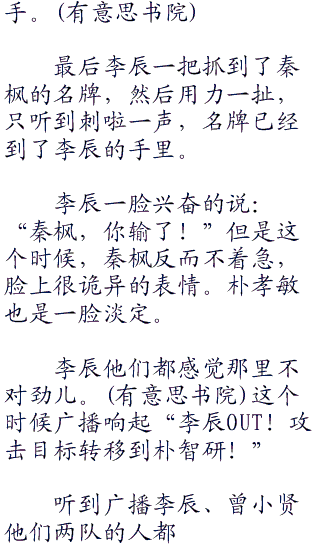 手。(有意思书院)
最后李辰一把抓到了秦
枫的名牌，然后用力一扯，
只听到刺啦一声，名牌已经
到了李辰的手里。
李辰一脸兴奋的说：
“秦枫，你输了！”但是这
个时候，秦枫反而不着急，
脸上很诡异的表情。朴孝敏
也是一脸淡定。
李辰他们都感觉那里不
对劲儿。(有意思书院)这个
时候广播响起“李辰OUT！攻
击目标转移到朴智研！”
听到广播李辰、曾小贤
他们两队的人都